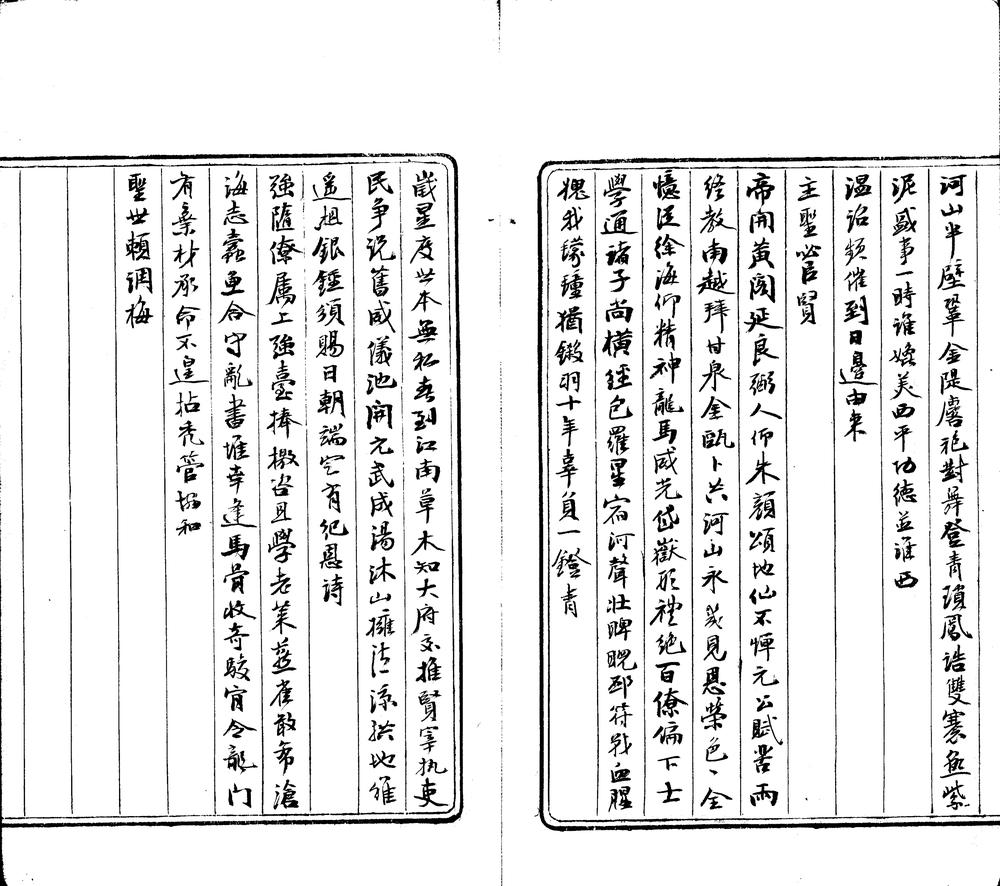 河山半壁鞏金隄襜袍對舞登青瑣鳳誥雙褰魚紫
泥盛事一時誰媲美西平功德並淮西
溫詔頻催到日邊由來
主聖必官賢
帝開黃閣延良弼人仰朱顏頌地仙不憚元公賦苦雨
終教南越拜甘泉金甌卜共河山永冀見恩榮色、全
憶從徐海仰精神龍馬威光岱嶽形禮絕百僚偏下士
學通諸子尚橫經包羅星宿河聲壯睥睨邳符戰血腥
愧我躘踵猶鎩羽十年辜負一鐙青
歲星度世本無私春到江南草木知大府交推賢宰執吏
民爭說舊威儀池開元武咸湯沐山擁清涼拱地維
遙想銀鍾須賜日朝端定有紀恩詩
強隨僚屬上強臺捧檄咨且學老萊燕雀敢希滄
海志蠹魚合守亂書堆幸逢馬骨收奇駿肯令龍門
有棄材承命不遑拈禿管協和
聖世賴調梅